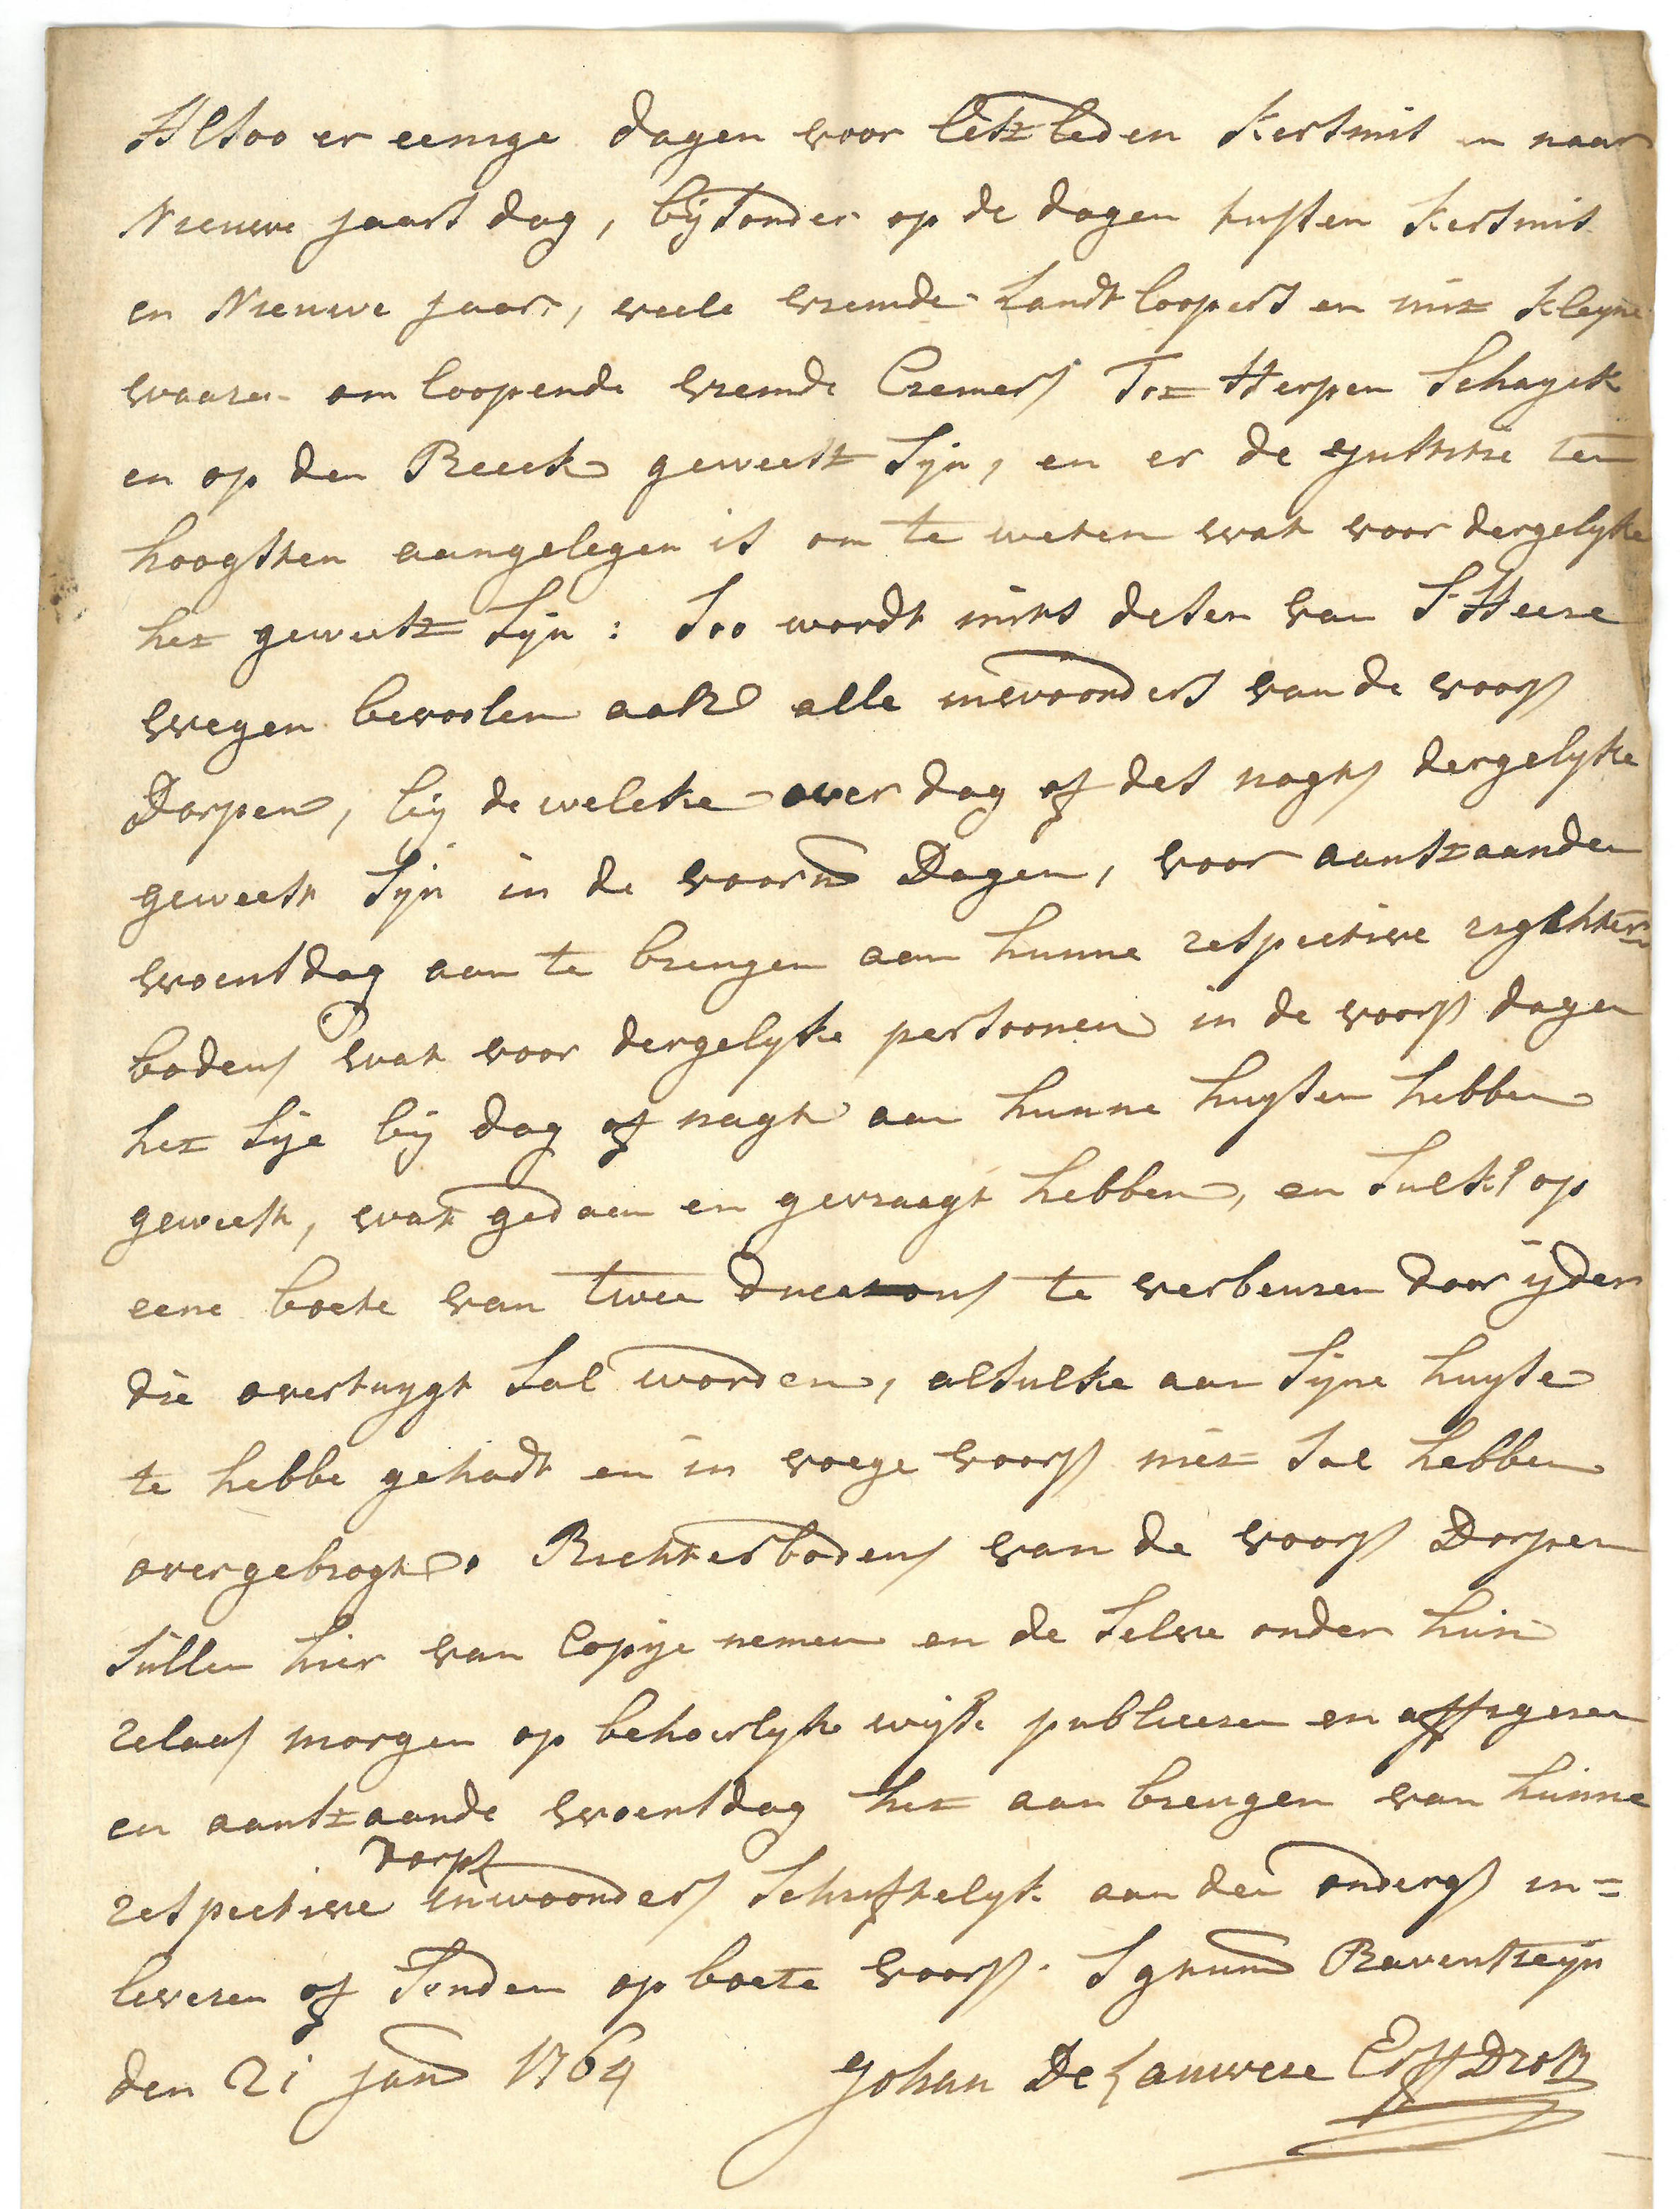 Alsoo er eenige dagen voor letstleden Kersmis en naar
Nieuwe jaars dag, bijsonder op de dagen tussen Kersmis
en Nieuwe jaar, veele vremde Landtloopers en met kleyne
waaren om loopende vremde Cremers Tot Herpen Schayck
en op den Reeck geweest sijn, en er de justitie ten
hoogsten aangelegen is om te weten wat voor dergelyke
het geweest sijn: Soo wordt mits desen van S'Heere
wegen bevoolen aan alle inwoonders van de voors
Dorpen, bij de welcke over dag of des nagts dergelyke
geweest sijn in de voorn Dagen, voor aanstaanden
woensdag aan te brengen aan hunne respective rigchter
bodens wat voor dergelyke persoonen in de voors dagen
het sije bij dag of nagt aan hunne huysen hebben
geweest, wat gedaen en gevraagt hebben, en sulks op
eene boete van twee ducatons te verbeuren door ijder
die overtuygt sal worden, alsulke aan sijne huyse
te hebbe gehadt en in voege voors niet sal hebben
overgebragt. Richtersbodens van de voors Dorpen
sullen hier van Copije nemen en de selve onder hun
relaas morgen op behoorlyke wijse publiceren en affigeren
en aanstaande woensdag het aan brengen van hunne
respective dorps inwoonders schriftelyk aan den onderg in=
leveren of senden op boete voors. Sgnum Ravensteyn
den 21 jan 1764 Johan De Lauwere Erffdrost